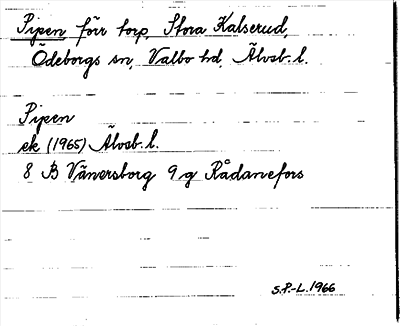 Pipen förr torp, Stora Kalserud,
Ödeborgs sn, Valbo hd, Älvsb. l.
Pipen
ek (1965) Älvsb. l.
8 B Vänersborg 9 g Rådanefors
S.P.-L. 1966